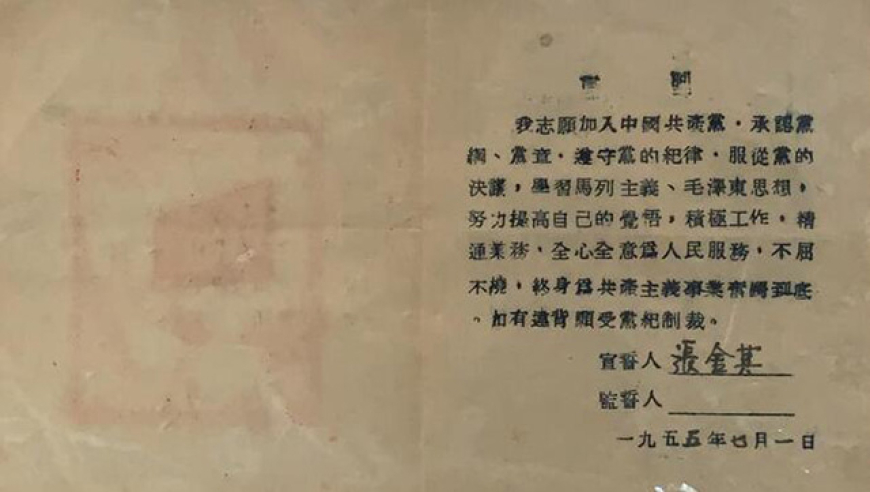 誓 詞
我志願加入中國共產黨，承認黨
綱、黨章，遵守黨的紀律，服從黨的
決議，學習馬列主義、毛澤東思想，
努力提高自己的覺悟，積極工作，精
通業務，全心全意爲人民服務，不屈
不撓，終身爲共產主義事業奮鬥到底
。如有違背願受黨紀制裁。
宣誓人 張金其
監誓人
一九五五年七月一日